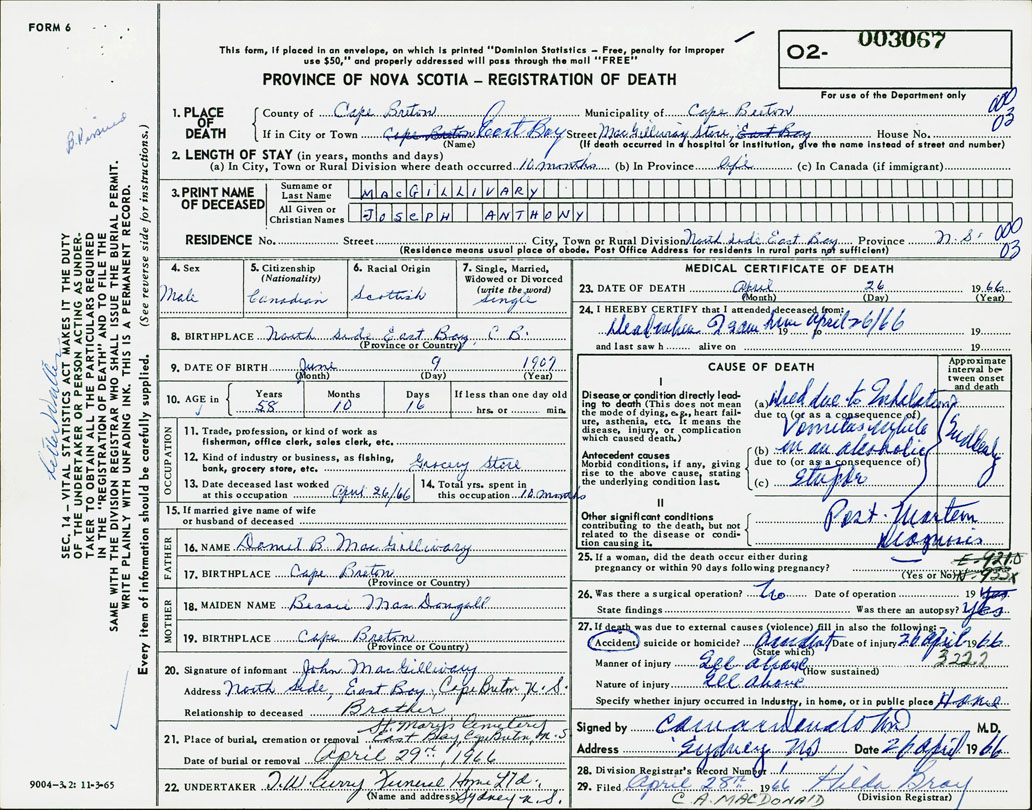 FORM 6
This form, if placed in an envelope, on which is printed "Dominion Statistics – Free, penalty for improper
use $50," and properly addressed will pass through the mail "FREE"
PROVINCE OF NOVA SCOTIA – REGISTRATION OF DEATH
02- 003067
For use of the Department only
000
03
1. PLACE OF DEATH
County of Cape Breton Municipality of Cape Breton
If in City or Town Cape Breton East Bay Street MacGillivray Store, East Bay House No.
(Name) (If death occurred in a hospital or institution, give the name instead of street and number)
2. LENGTH OF STAY (in years, months and days)
(a) In City, Town or Rural Division where death occurred 10 months (b) In Province Life (c) In Canada (if immigrant)
3. PRINT NAME OF DECEASED
Surname or Last Name MACGILLIVARY
All Given or Christian Names JOSEPH ANTHONY
RESIDENCE No. Street City, Town or Rural Division North Side East Bay Province N.S. 000 03
(Residence means usual place of abode. Post Office Address for residents in rural parts not sufficient)
4. Sex
Male
5. Citizenship
(Nationality)
Canadian
6. Racial Origin
Scottish
7. Single, Married,
Widowed or Divorced
(write the word)
Single
8. BIRTHPLACE North Side East Bay, C B.
(Province or Country)
9. DATE OF BIRTH June 9 1907
(Month) (Day) (Year)
10. AGE in Years 58 Months 10 Days 16 If less than one day old
hrs. or min.
OCCUPATION
11. Trade, profession, or kind of work as
fisherman, office clerk, sales clerk, etc.
12. Kind of industry or business, as fishing,
bank, grocery store, etc. Grocery Store
13. Date deceased last worked
at this occupation April 26/66
14. Total yrs. spent in
this occupation 10 months
15. If married give name of wife
or husband of deceased
FATHER
16. NAME B. MacGillivary
17. BIRTHPLACE Cape Breton
(Province or Country)
MOTHER
18. MAIDEN NAME Bessie MacDougall
19. BIRTHPLACE Cape Breton
(Province or Country)
20. Signature of informant John MacGillivary
Address North Side, East Bay, Cape Breton N.S.
Relationship to deceased Brother
21. Place of burial, cremation or removal St. Mary's Cemetery
East Bay Cape Breton, N.S
Date of burial or removal April 29th, 1966
22. UNDERTAKER T.W. Curry Funeral Home Ltd.
(Name and address) Sydney N.S.
MEDICAL CERTIFICATE OF DEATH
23. DATE OF DEATH April 26 1966
(Month) (Day) (Year)
24. I HEREBY CERTIFY that I attended deceased from:
April 26/66
19 to 19
and last saw h alive on 19
CAUSE OF DEATH
Approximate interval between onset and death
I
Disease or condition directly leading to death (This does not mean
the mode of dying, e.g., heart failure, asthenia, etc. It means the
disease, injury, or complication
which caused death.)
(a) Died due to Inhalation
due to (or as a consequence of)
Vomitus while
Antecedent causes
Morbid conditions, if any, giving
rise to the above cause, stating
the underlying condition last.
(b) in an alcoholic
due to (or as a consequence of)
(c) Stupor
Suddenly
II
Other significant conditions
contributing to the death, but not
related to the disease or condition causing it.
Post-Mortem
Diagnosis
25. If a woman, did the death occur either during
pregnancy or within 90 days following pregnancy?
(Yes or No)
E-921.0
N-933X
26. Was there a surgical operation? No Date of operation 19
State findings Was there an autopsy? Yes
27. If death was due to external causes (violence) fill in also the following:
Accident, suicide or homicide? Accident Date of injury 26 April 1966
(State which)
322.2
Manner of injury See above
(How sustained)
Nature of injury See above
Specify whether injury occurred in Industry, in home, or in public place Home
Signed by M.D.
Address Sydney NS Date April 1966
28. Division Registrar's Record Number 1
29. Filed April 28th 1966 Hilda Gray
(Division Registrar)
C. A. MACDONALD
SEC. 14 – VITAL STATISTICS ACT MAKES IT THE DUTY
OF THE UNDERTAKER OR PERSON ACTING AS UNDER-
TAKER TO OBTAIN ALL THE PARTICULARS REQUIRED
IN THE "REGISTRATION OF DEATH" AND TO FILE THE
SAME WITH THE DIVISION REGISTRAR WHO SHALL ISSUE THE BURIAL PERMIT.
WRITE PLAINLY WITH UNFADING INK. THIS IS A PERMANENT RECORD.
Every item of information should be carefully supplied. (See reverse side for instructions.)
9004-3.2: 11-3-65